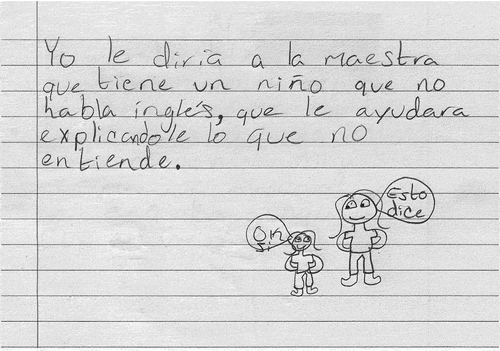 Yo le diría a la maestra
que tiene un niño que no
habla inglés, que le ayudara
explicandole lo que no
entiende.
Esto
dice
Oh
si